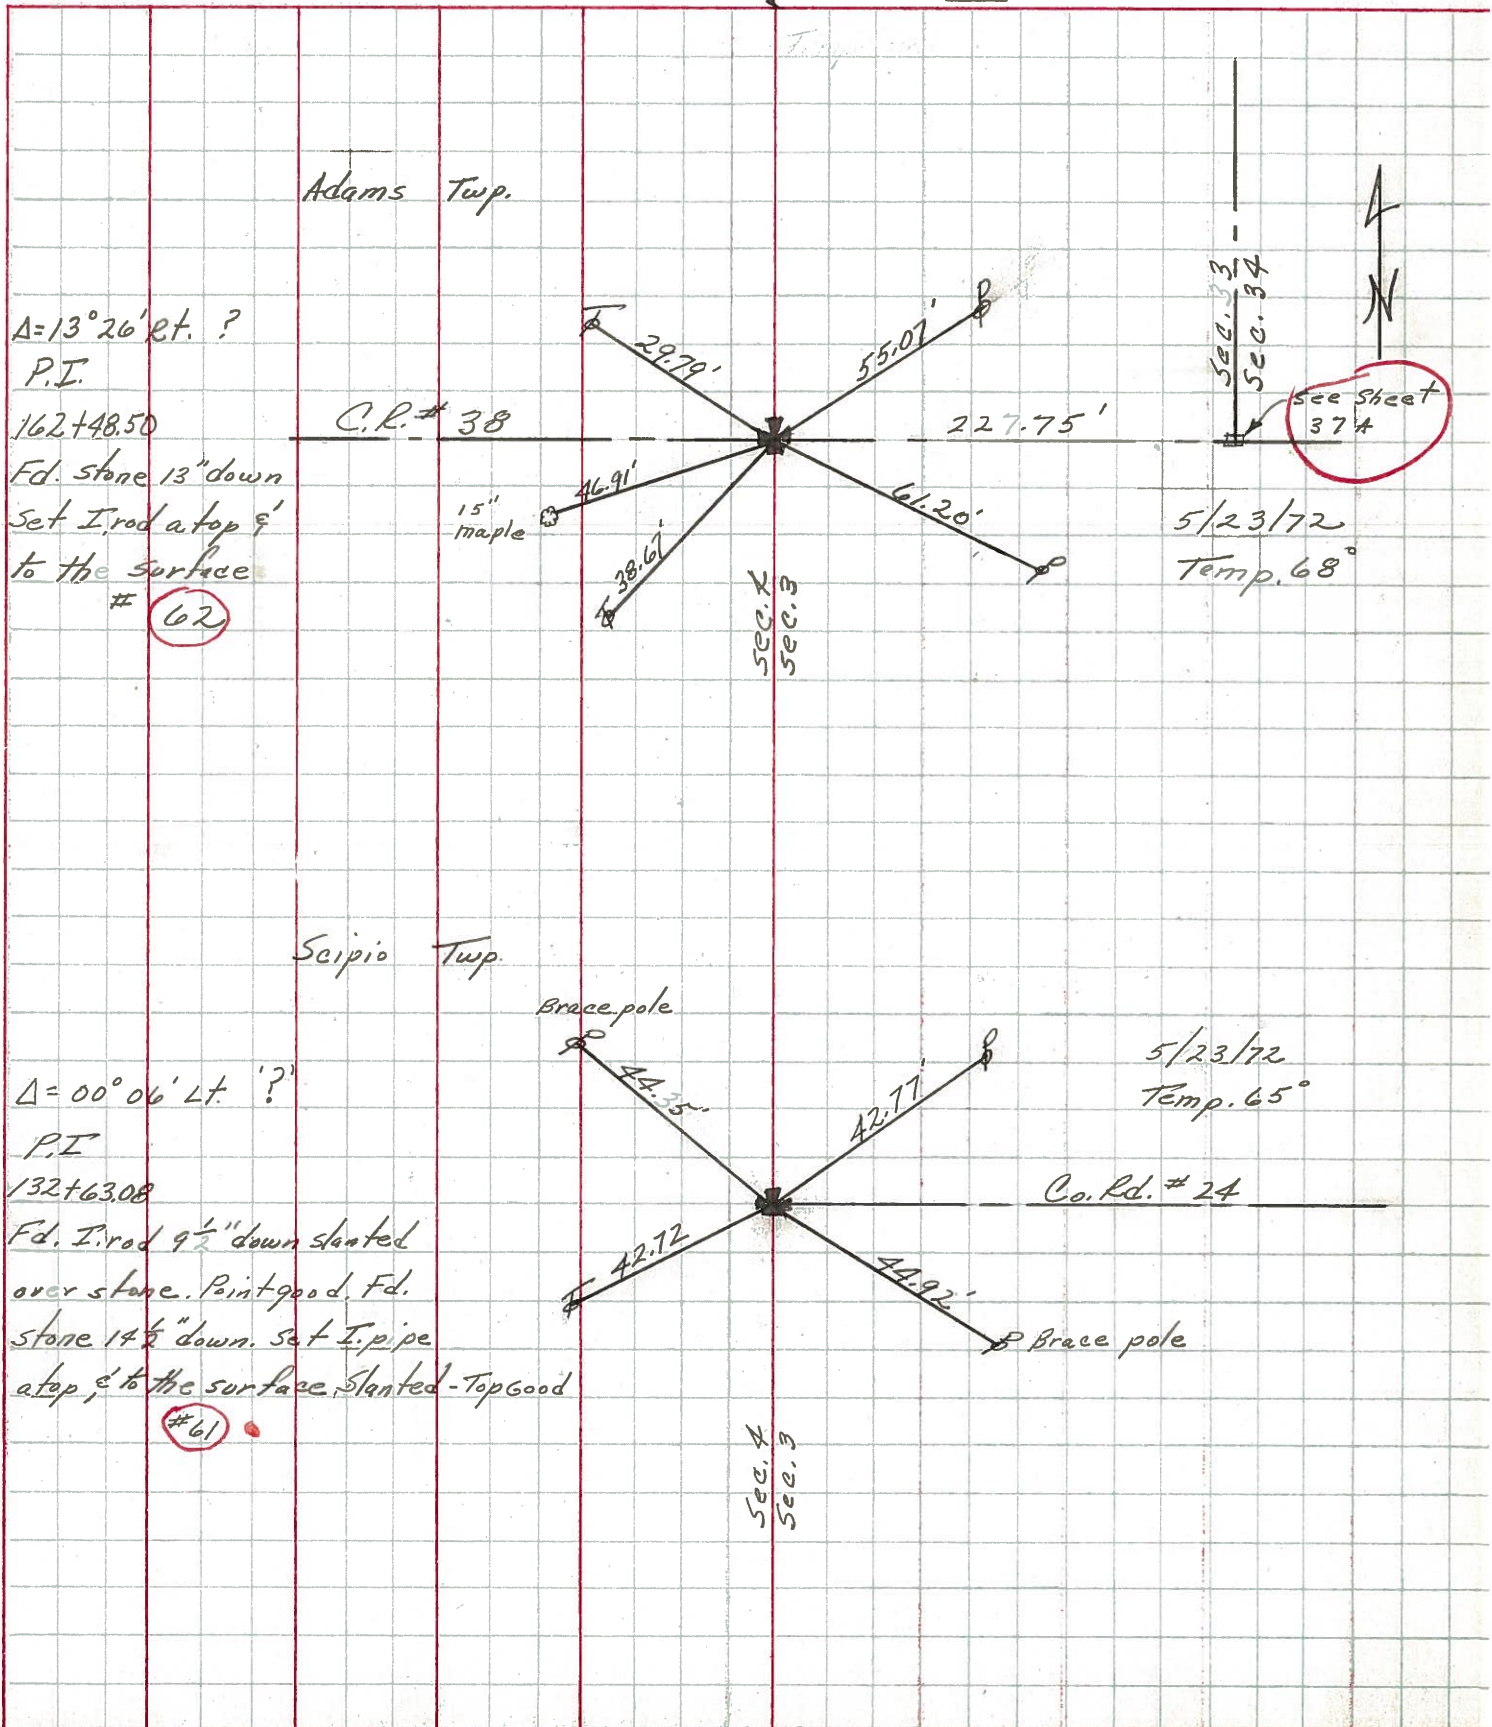 Adams Twp.
Δ=13°26' Rt. ?
P.I.
162+48.50
Fd. stone 13" down
Set I.rod atop &
to the surface
# 62
29.79'
55.07'
C.R.# 38
227.75'
46.91'
15"
maple
38.67'
61.20'
Sec. 33
Sec. 34
N
see sheet
37A
5/23/72
Temp. 68°
Sec. 4
Sec. 3
Scipio Twp.
Brace pole
44.35'
42.77'
5/23/72
Temp. 65°
Δ= 00°06' Lt. ?
P.I
132+63.08
Fd. I.rod 9 1/2" down slanted
over stone. Point good. Fd.
stone 14 1/2" down. Set I.pipe
atop, & to the surface, Slanted - Top Good
#61
Co. Rd. # 24
42.72
44.92'
Brace pole
Sec. 4
Sec. 3